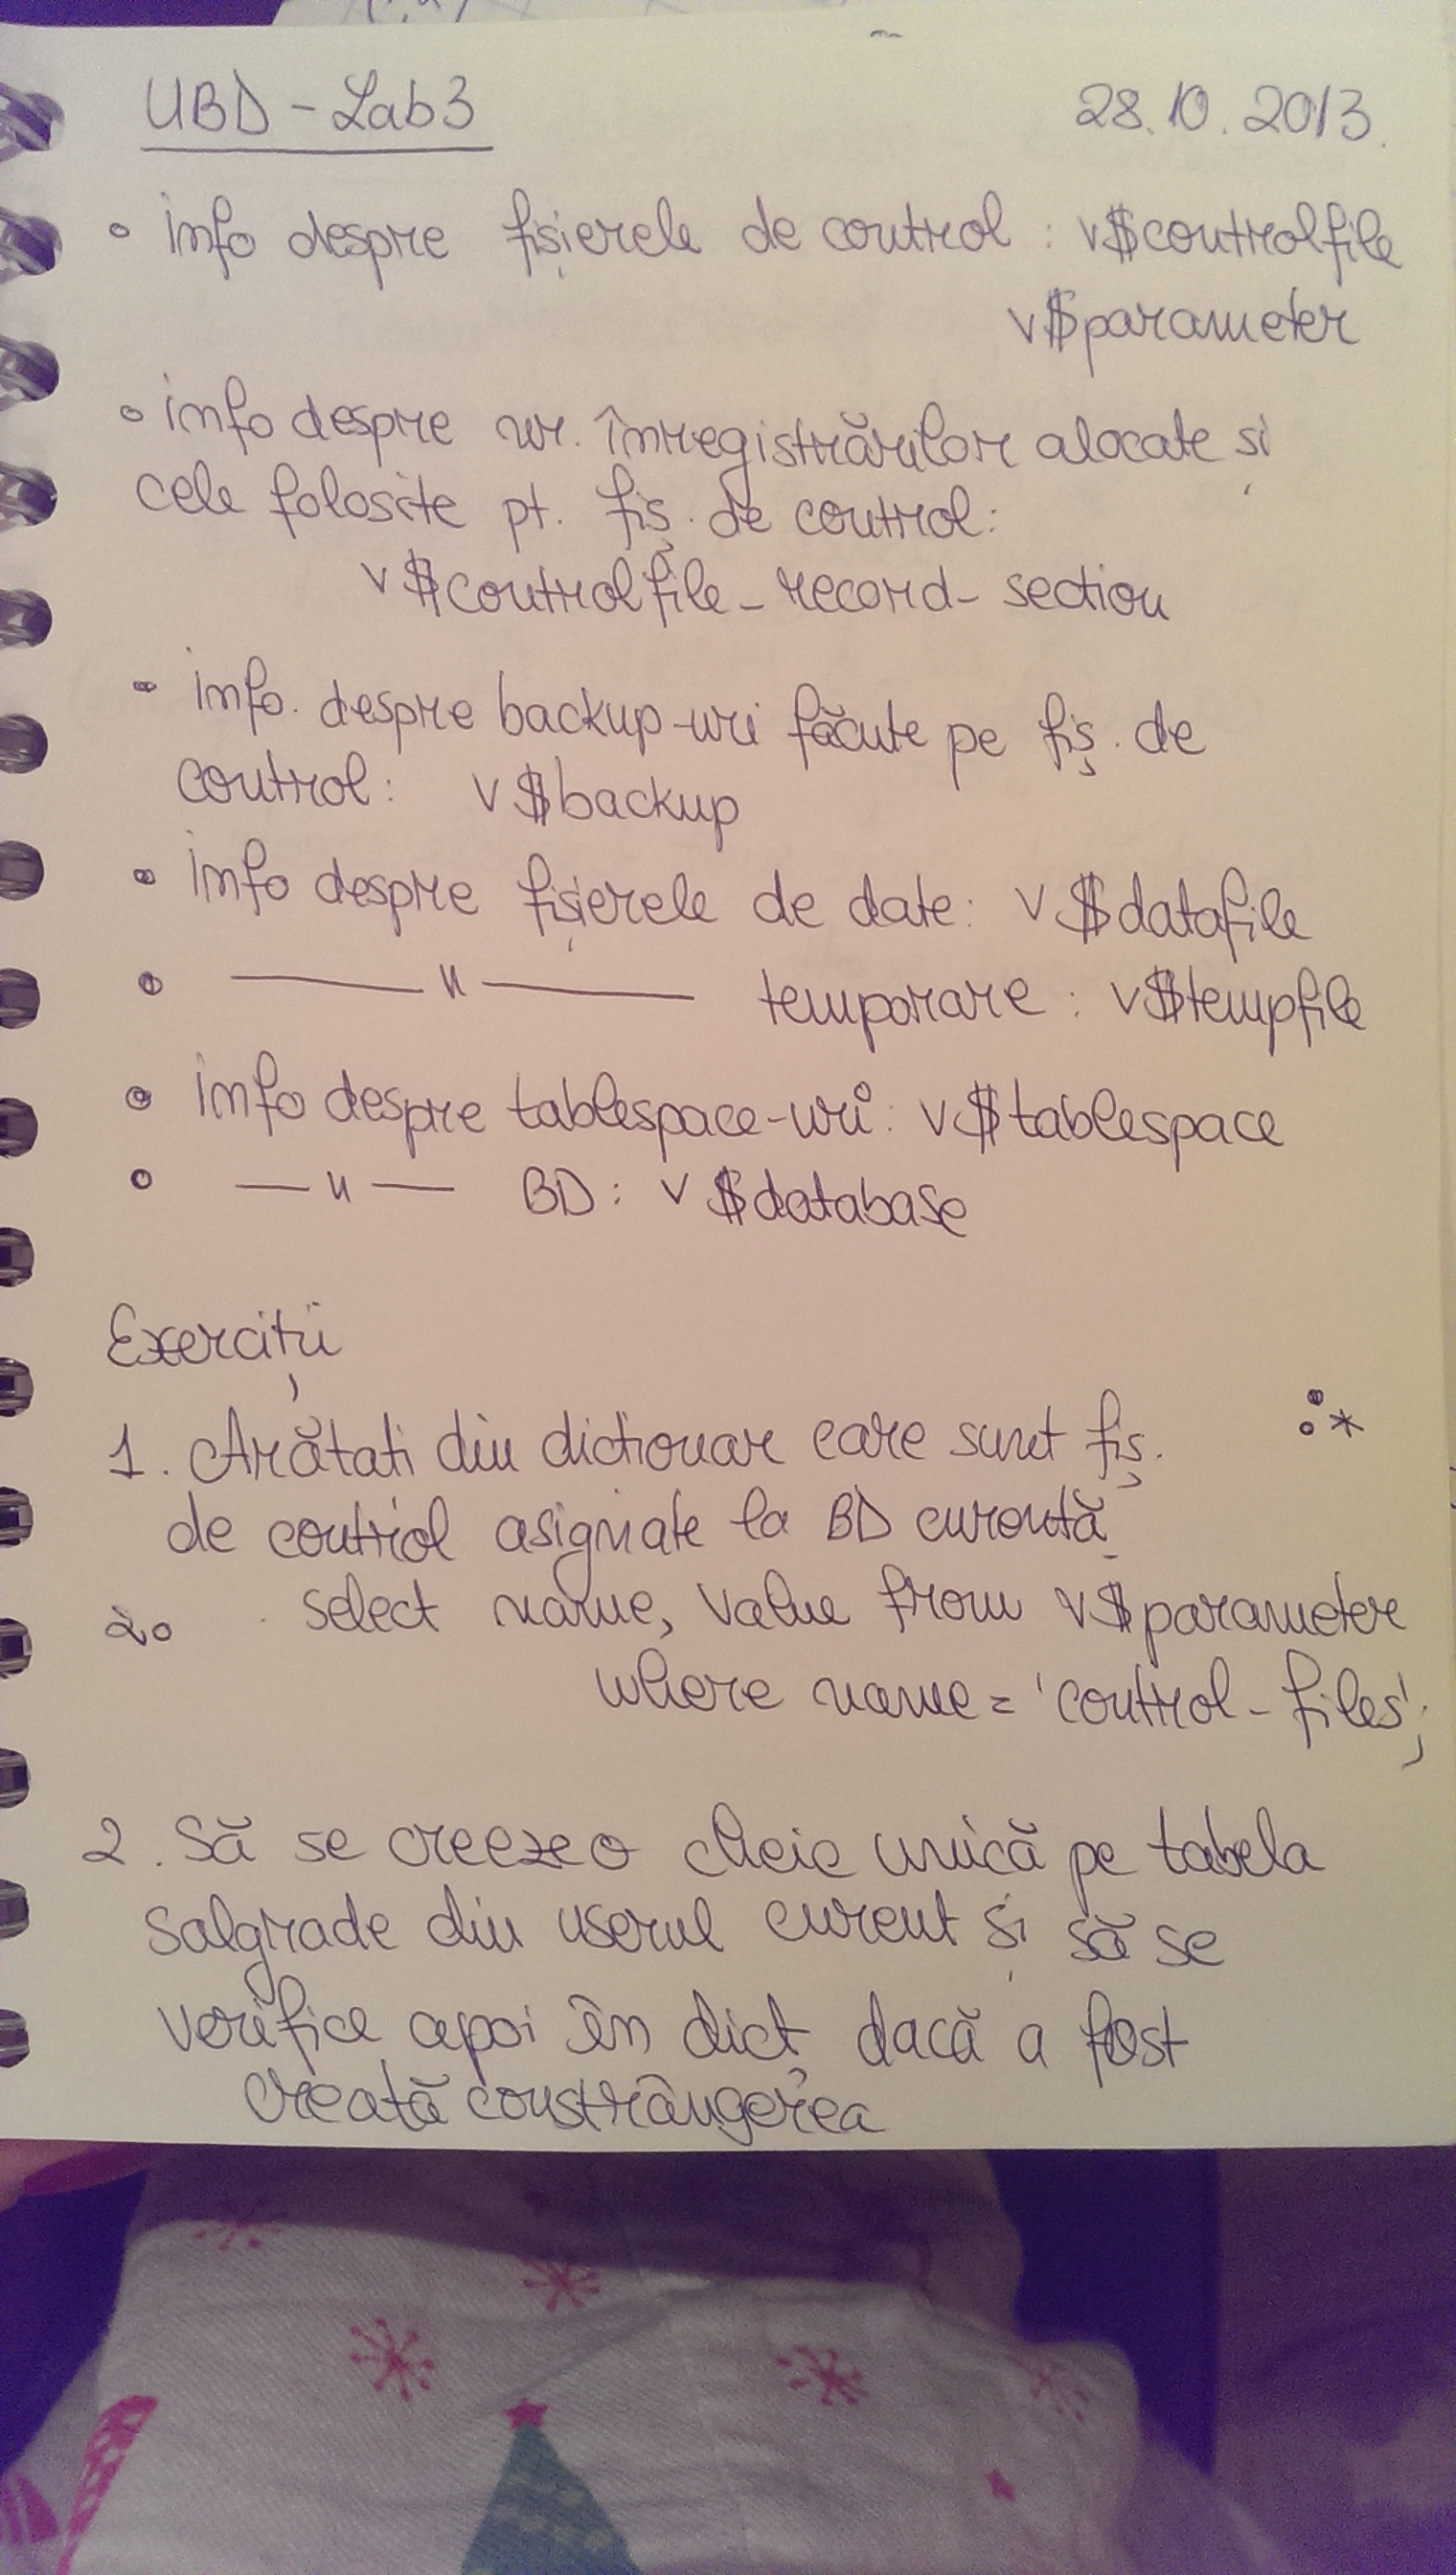 UBD - Lab3 28.10.2013.
• info despre fișierele de control : v$controlfile
v$parameter
• info despre nr. înregistrărilor alocate și
cele folosite pt. fiș. de control:
v$controlfile_record_section
• info. despre backup-uri făcute pe fiș. de
control: v$backup
• info despre fișierele de date: v$datafile
• ——— " ——— temporare : v$tempfile
• info despre tablespace-uri: v$tablespace
• — " — BD: v$database
Exerciții
1. Arătati din dictionar care sunt fiș. :*
de control asignate la BD curentă
select name, value from v$parameter
where name = 'control_files';
2. Să se creeze o cheie unică pe tabela
salgrade din userul curent și să se
verifice apoi în dicț dacă a fost
creată constrângerea